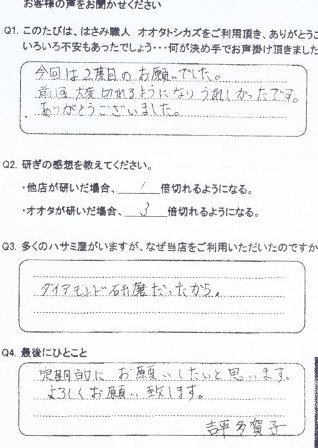 お客様の声をお聞かせください
Q1. このたびは、はさみ職人 オオタトシカズをご利用頂き、ありがとうご
いろいろ不安もあったでしょう・・・何が決め手でお声掛け頂きました
今回は2度目のお願いでした。
前回大変切れるようになりうれしかったです。
ありがとうございました。
Q2. 研ぎの感想を教えてください。
・他店が研いだ場合、 1 倍切れるようになる。
・オオタが研いだ場合、 3 倍切れるようになる。
Q3. 多くのハサミ屋がいますが、なぜ当店をご利用いただいたのですか
ダイアモンド研磨だったから。
Q4. 最後にひとこと
定期的にお願いしたいと思います。
よろしくお願い致します。
多賀子